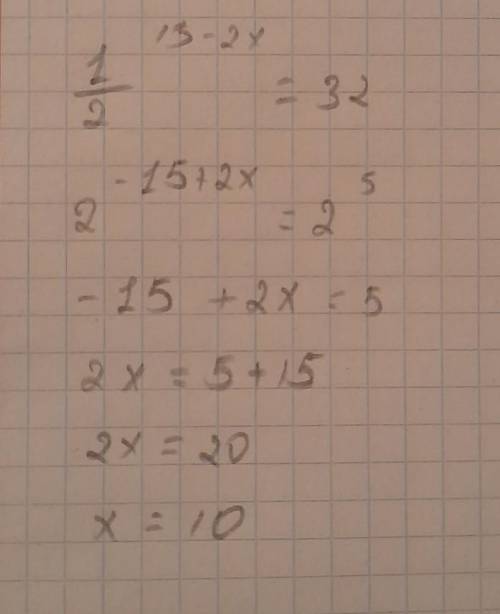 1/2 ^ 13-2x = 32
2 ^ -15+2x = 2 ^ 5
-15 + 2x = 5
2x = 5+15
2x = 20
x = 10